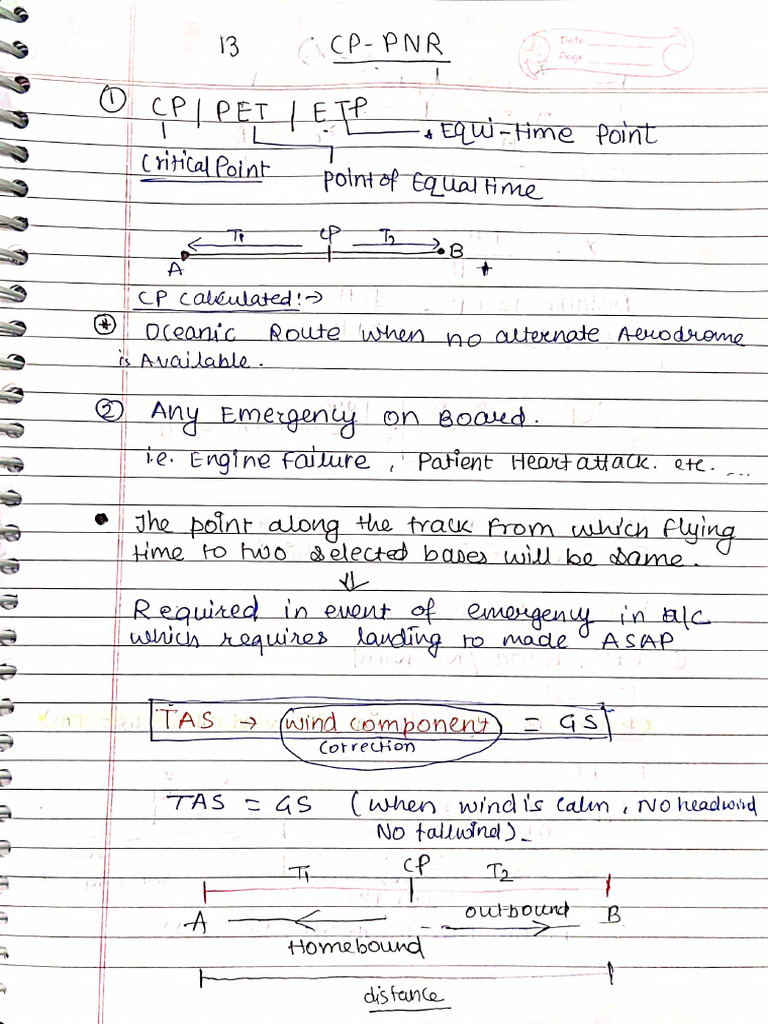 13 CP-PNR
Date
Page
① CP | PET | ETP
Equi-time point
Critical Point
Point of Equal time
T1 CP T2
A B
CP Calculated:→
* Oceanic Route when no alternate Aerodrome
is Available.
② Any Emergency on Board.
i.e. Engine Failure, Patient Heart attack. etc. ...
• The point along the track from which flying
time to two selected bases will be same.
⇓
Required in event of emergency in a/c
which requires landing to made ASAP
TAS → wind component = GS
correction
TAS = GS (when wind is calm, No headwind
No tailwind).
T1 CP T2
A outbound B
Homebound
distance